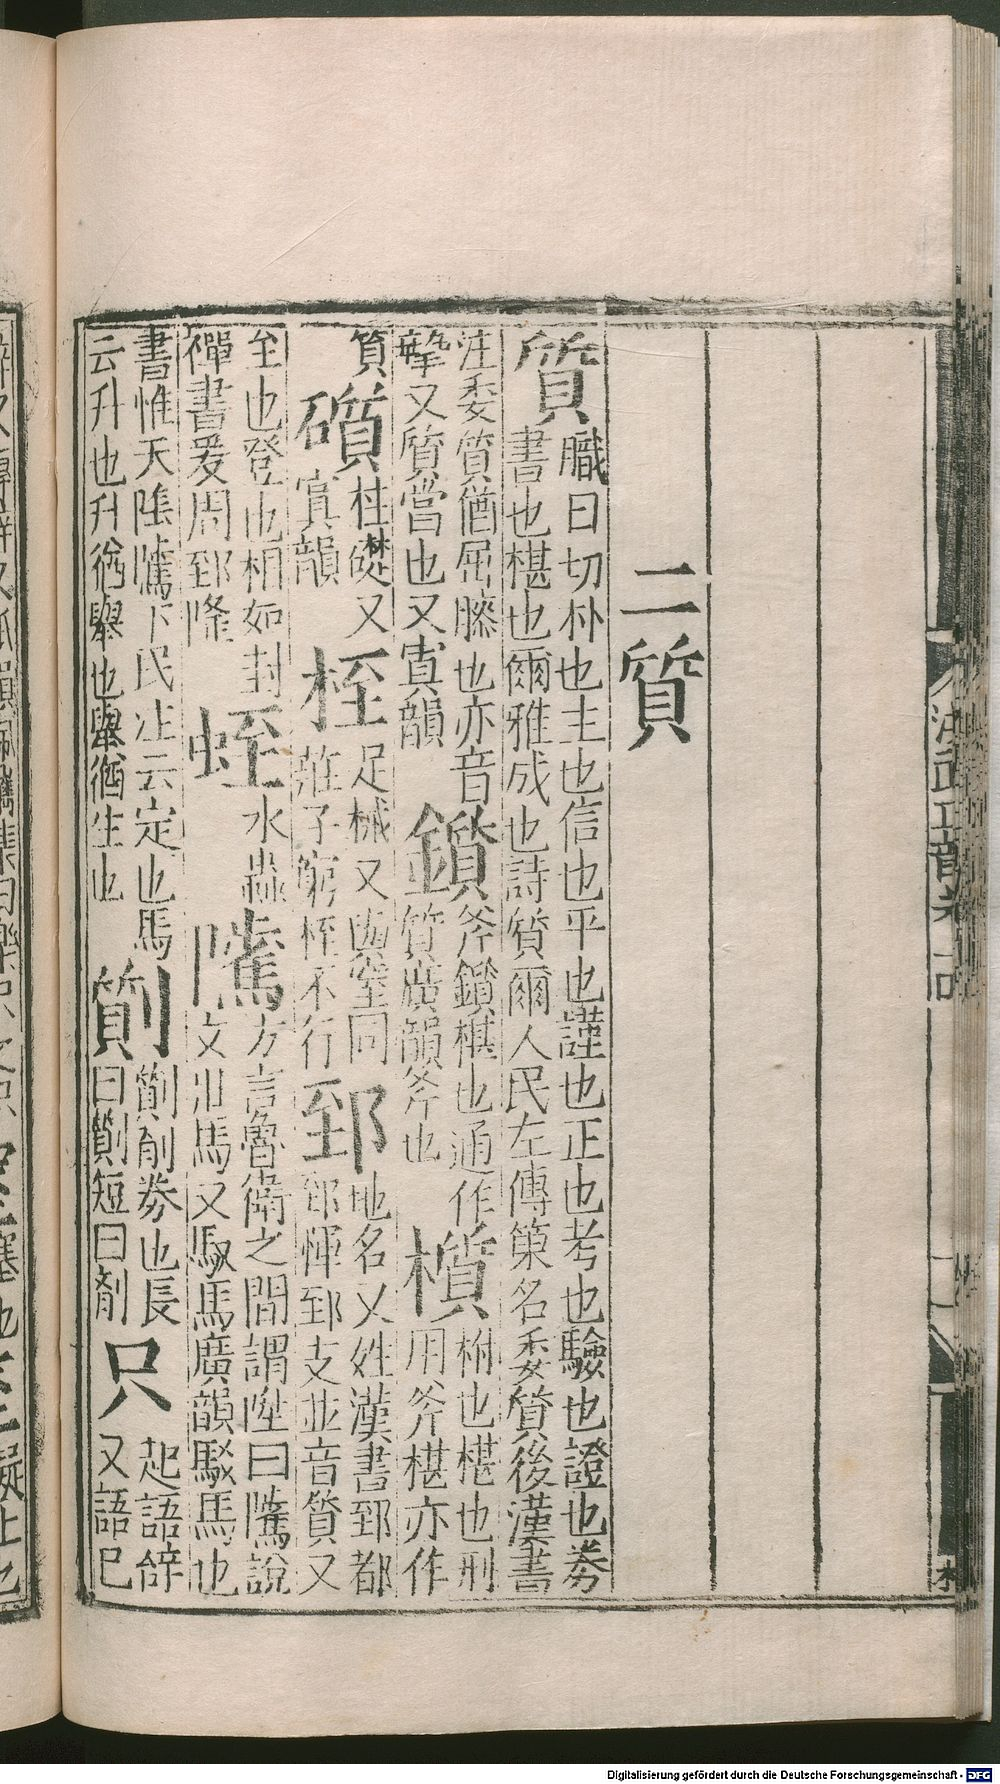 二質
質
職日切朴也主也信也平也謹也正也考也驗也證也券
書也椹也爾雅成也詩質爾人民左傳策名委質後漢書
注委質猶屈膝也亦音
摯又質當也又寘韻
鑕
斧鑕椹也通作
質廣韻斧也
櫍
柎也椹也刑
用斧椹亦作
質
礩
柱礎又
寘韻
桎
足械又與窒同
莊子窮桎不行
郅
地名又姓漢書郅都
郅惲郅支並音質又
至也登也相如封
禪書爰周郅隆
蛭
水蟲
騭
方言魯衛之間謂陞曰騭說
文牡馬又馭馬廣韻駁馬也
書惟天陰騭下民注云定也馬
云升也升猶舉也舉猶生也
劕
劕劑券也長
曰劕短曰劑
只
起語辭
又語已
Digitalisierung gefördert durch die Deutsche Forschungsgemeinschaft - DFG